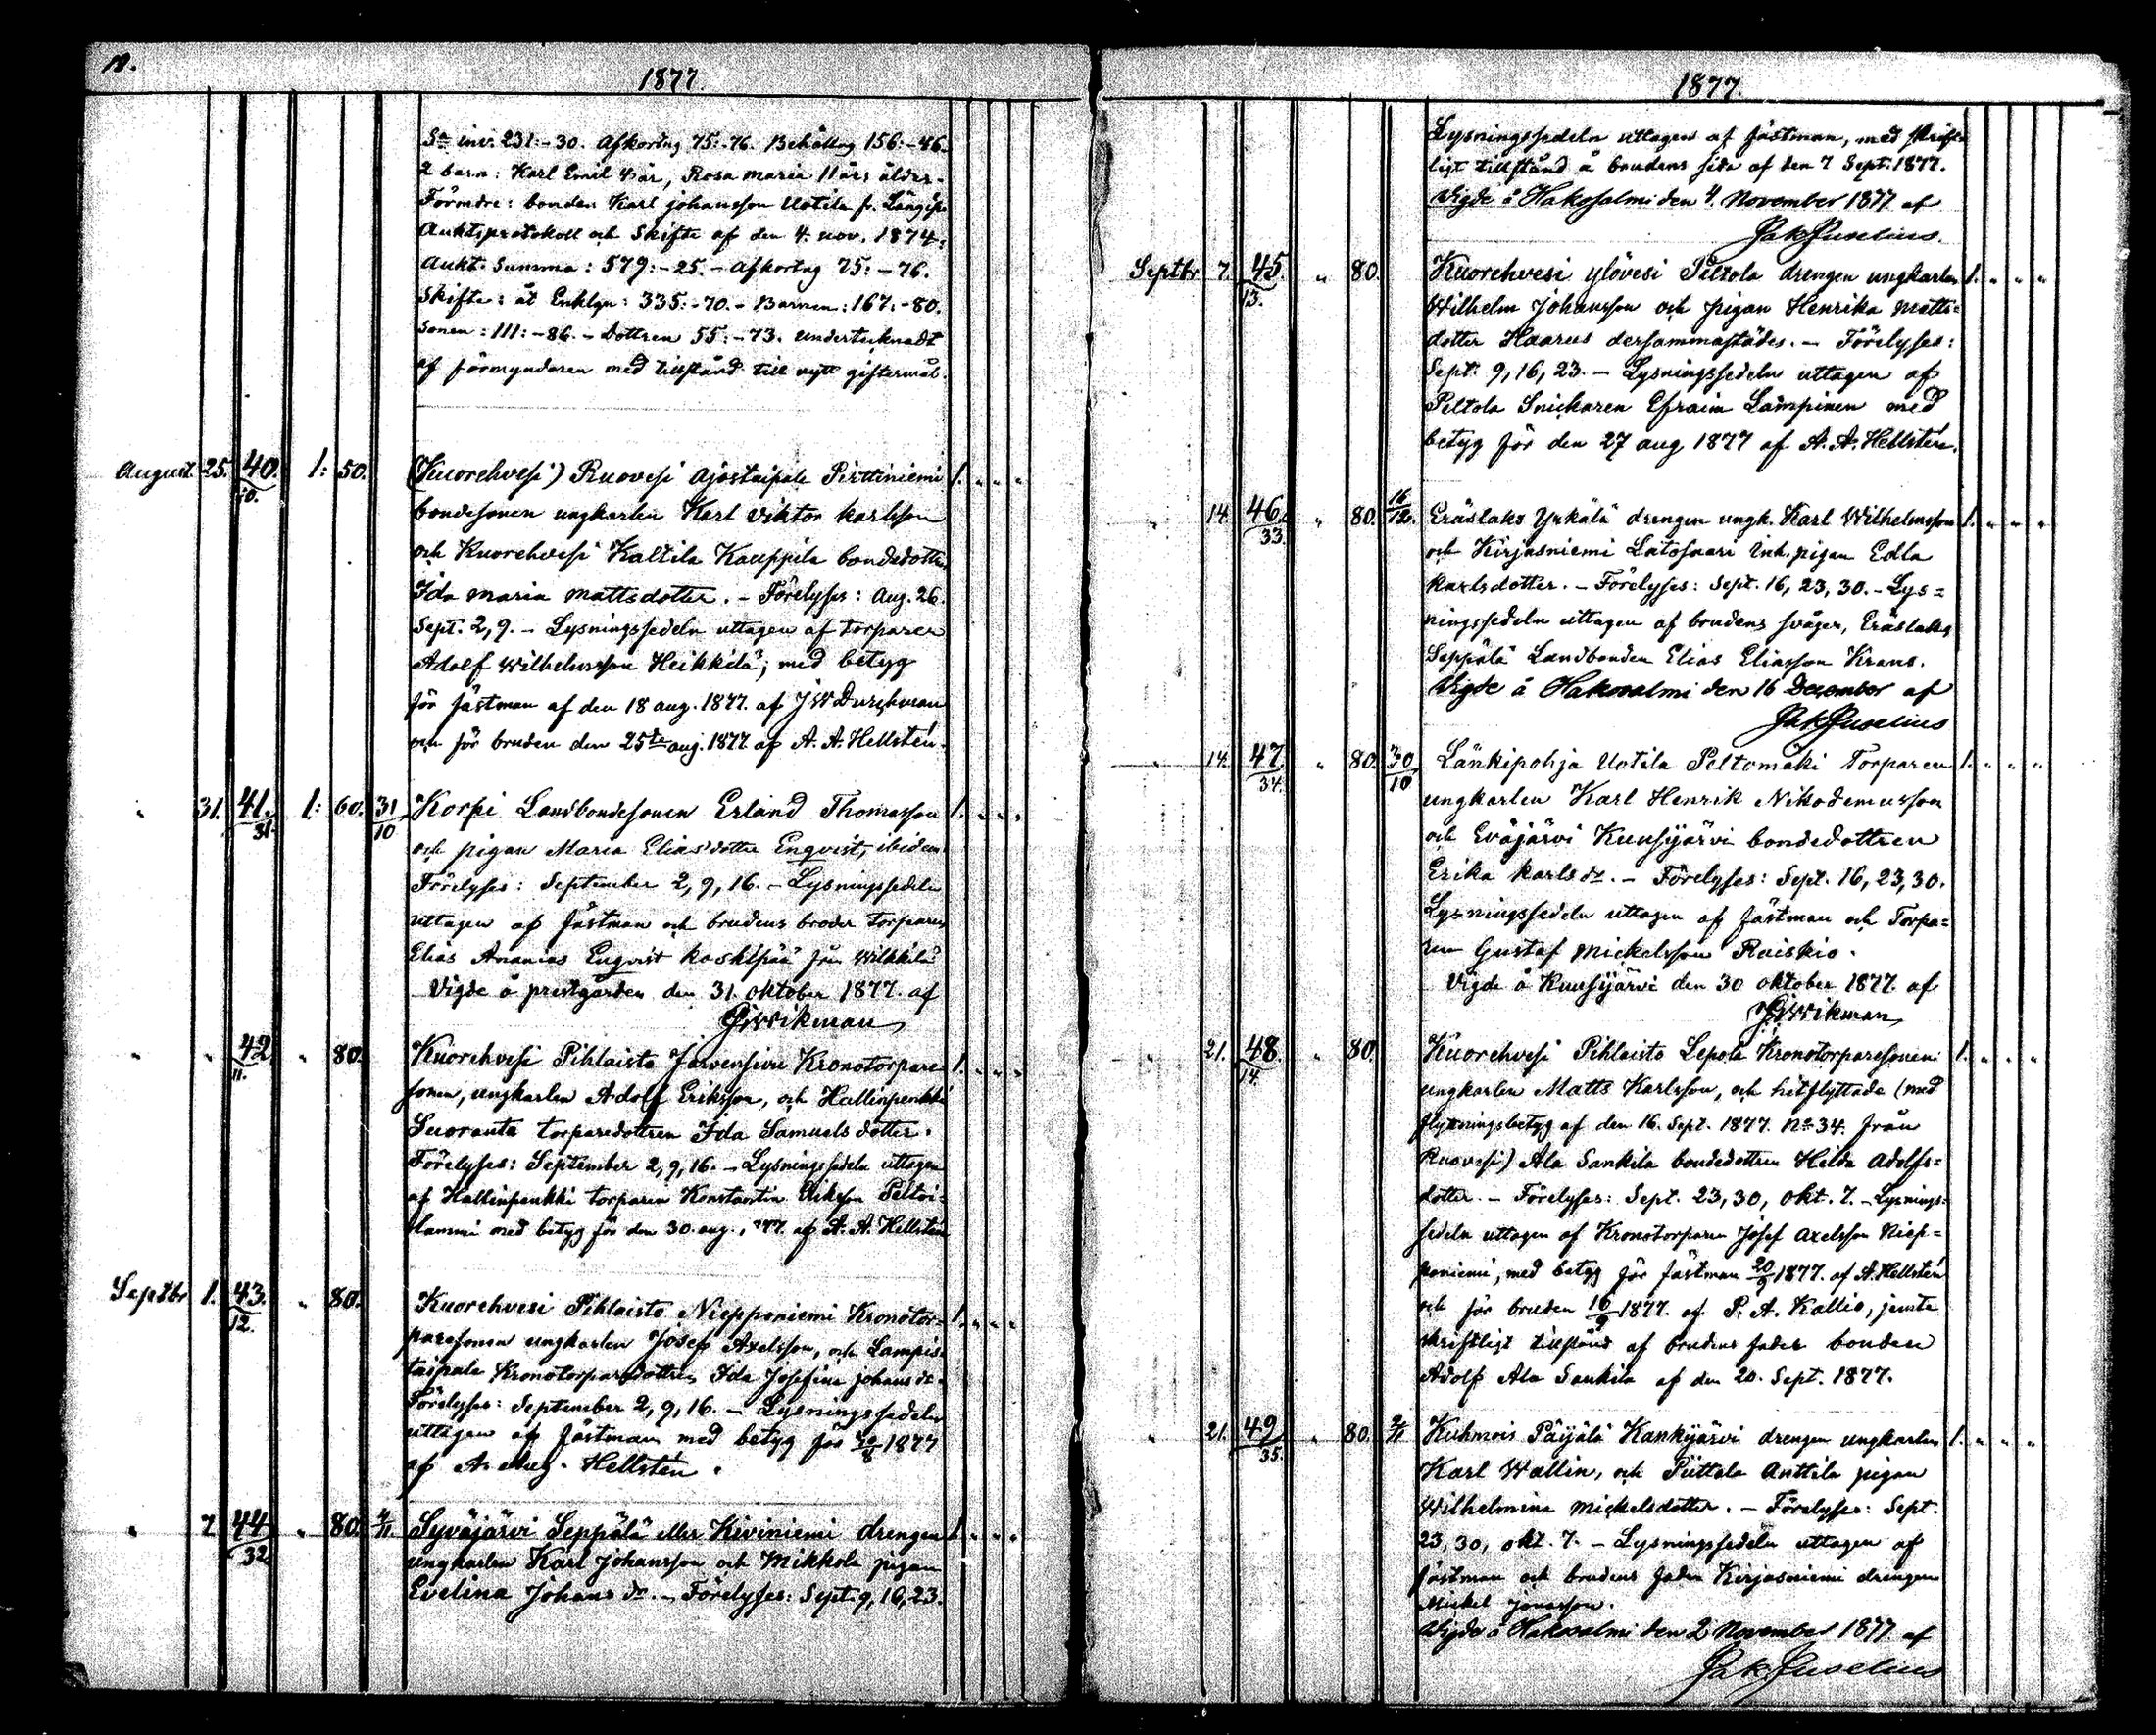 1877.
Sa inv. 231:-30. Afkortng 75:-76. Behållng 156:-46.
2 barn: Karl Emil 4 år, Rosa Maria 11 års ålder.
Förmdre: bonden Karl Johansson Uotila fr. Längip.
Auktsprotokoll och Skifte af den 4. nov. 1874:
Aukt. Summa: 579:-25. - Afkortng 75:-76.
Skifte: åt Enkan: 335:-70. - Barnen: 167:-80.
Sonen: 111:-86. - Dottren 55:-73. undertecknadt
af förmyndaren med tillstånd till nytt giftermål.
August 25. 40. 10. 1: 50. (Kuorehvesi) Ruovesi Ajostaipale Pirttiniemi 1. " " "
bondesonen ungkarlen Karl Viktor Karlsson
och Kuorehvesi Kaltila Kauppila bondedottren
Ida Maria Mattsdotter. - Förelyses: Aug. 26.
Sept. 2, 9. - Lysningssedeln uttagen af torparen
Adolf Wilhelmsson Heikkilä, med betyg
för fästman af den 18 aug. 1877. af J W Durchman
och för bruden den 25te aug. 1877 af A. A. Hellstén.
" 31. 41. 31. 1: 60. 31/10 Korpi Landbondesonen Erland Thomasson 1. " " "
och pigan Maria Eliasdotter Enqvist, ibidem.
Förelyses: September 2, 9, 16. - Lysningssedeln
uttagen af fästman och brudens broder torparen
Elias Ananias Enqvist Koskipää från Wilkkilä
Vigde å prestgården den 31. oktober 1877. af
J. Wikman
" " 42 11. " 80. Kuorehvesi Pihlaisto Järvensivu Kronotorpare 1. " " "
sonen, ungkarlen Adolf Eriksson, och Hallinpenkki
Suoranta torparedottren Ida Samuelsdotter.
Förelyses: September 2, 9, 16. - Lysningssedeln uttagen
af Hallinpenkki torparen Konstantin Eriksson Peltoi-
lammi med betyg för den 30. aug., 1877. af A. A. Hellstén
Septbr 1. 43. 12. " 80. Kuorehvesi Pihlaisto Niepponiemi Kronotor- 1. " " "
paresonen ungkarlen Josef Axelsson, och Lampis-
taipale Kronotorparedottren Ida Josefina Johansdr.
Förelyses: September 2, 9, 16. - Lysningssedeln
uttagen af fästman med betyg för 30/8 1877
af A. Aug. Hellstén.
" 7. 44 32 " 80. 4/11 Syväjärvi Seppälä eller Kiviniemi drengen 1. " " "
ungkarlen Karl Johansson och Mikkola pigan
Evelina Johans dr. - Förelyses: Sept. 9, 16, 23.
1877.
Lysningssedeln uttagen af fästman, med skrift-
ligt tillstånd å brudens sida af den 7 Sept. 1877.
Vigde å Hakosalmi den 4. November 1877 af
Jak Juselius.
Septbr 7. 45. 13. " 80. Kuorehvesi Ylövesi Peltola drengen ungkarlen 1. " " "
Wilhelm Johansson och pigan Henrika Matts-
dotter Haarus dersammastädes. - Förelyses:
Sept. 9, 16, 23. - Lysningssedeln uttagen af
Peltola Snickaren Efraim Lampinen med
betyg för den 27 aug 1877 af A. A. Hellstén.
" 14. 46. 33. " 80. 16/12. Eräslaks Yrkälä drengen ungk. Karl Wilhelmsson 1. " " "
och Kirjasniemi Latosaari Inh. pigan Edla
Karlsdotter. - Förelyses: Sept. 16, 23, 30. - Lys-
ningssedeln uttagen af brudens svåger, Eräslaks
Seppälä Landbonden Elias Eliasson Krans.
Vigde å Hakosalmi den 16 December af
Jak Juselius
" 14. 47. 34. " 80. 30/10 Länkipohja Uotila Peltomäki Torparen 1. " " "
ungkarlen Karl Henrik Nikodemusson
och Eväjärvi Kuusijärvi bondedottren
Erika Karlsdr. - Förelyses: Sept. 16, 23, 30.
Lysningssedeln uttagen af fästman och Torpa-
ren Gustaf Mickelsson Raiskio.
Vigde å Kuusijärvi den 30 oktober 1877. af
J. Wikman
" 21. 48. 14. " 80. Kuorehvesi Pihlaisto Lepola Kronotorparesonen 1. " " "
ungkarlen Matts Karlsson, och hitflyttade (med
flyttningsbetyg af den 16. Sept. 1877. No 34. från
Ruovesi) Ala Sankila bondedottren Hilda Adolfs-
dotter. - Förelyses: Sept. 23, 30, Okt. 7. - Lysnings-
sedeln uttagen af Kronotorparen Josef Axelsson Niep-
poniemi, med betyg för fästman 20/9 1877. af A. Hellstén
och för bruden 16/9 1877. af P. A. Kallio, jemte
skriftligt tillstånd af brudens fader bonden
Adolf Ala Sankila af den 20. Sept. 1877.
" 21. 49. 35. " 80. 2/11 Kuhmois Päijälä Kankijärvi drengen ungkarlen 1. " " "
Karl Wallin, och Puttola Anttila pigan
Wilhelmina Mickelsdotter. - Förelyses: Sept.
23, 30, okt. 7. - Lysningssedeln uttagen af
fästman och brudens fader Kirjasniemi drengen
Mickel Jonasson.
Vigde å Hakosalmi den 2 November 1877 af
Jak Juselius